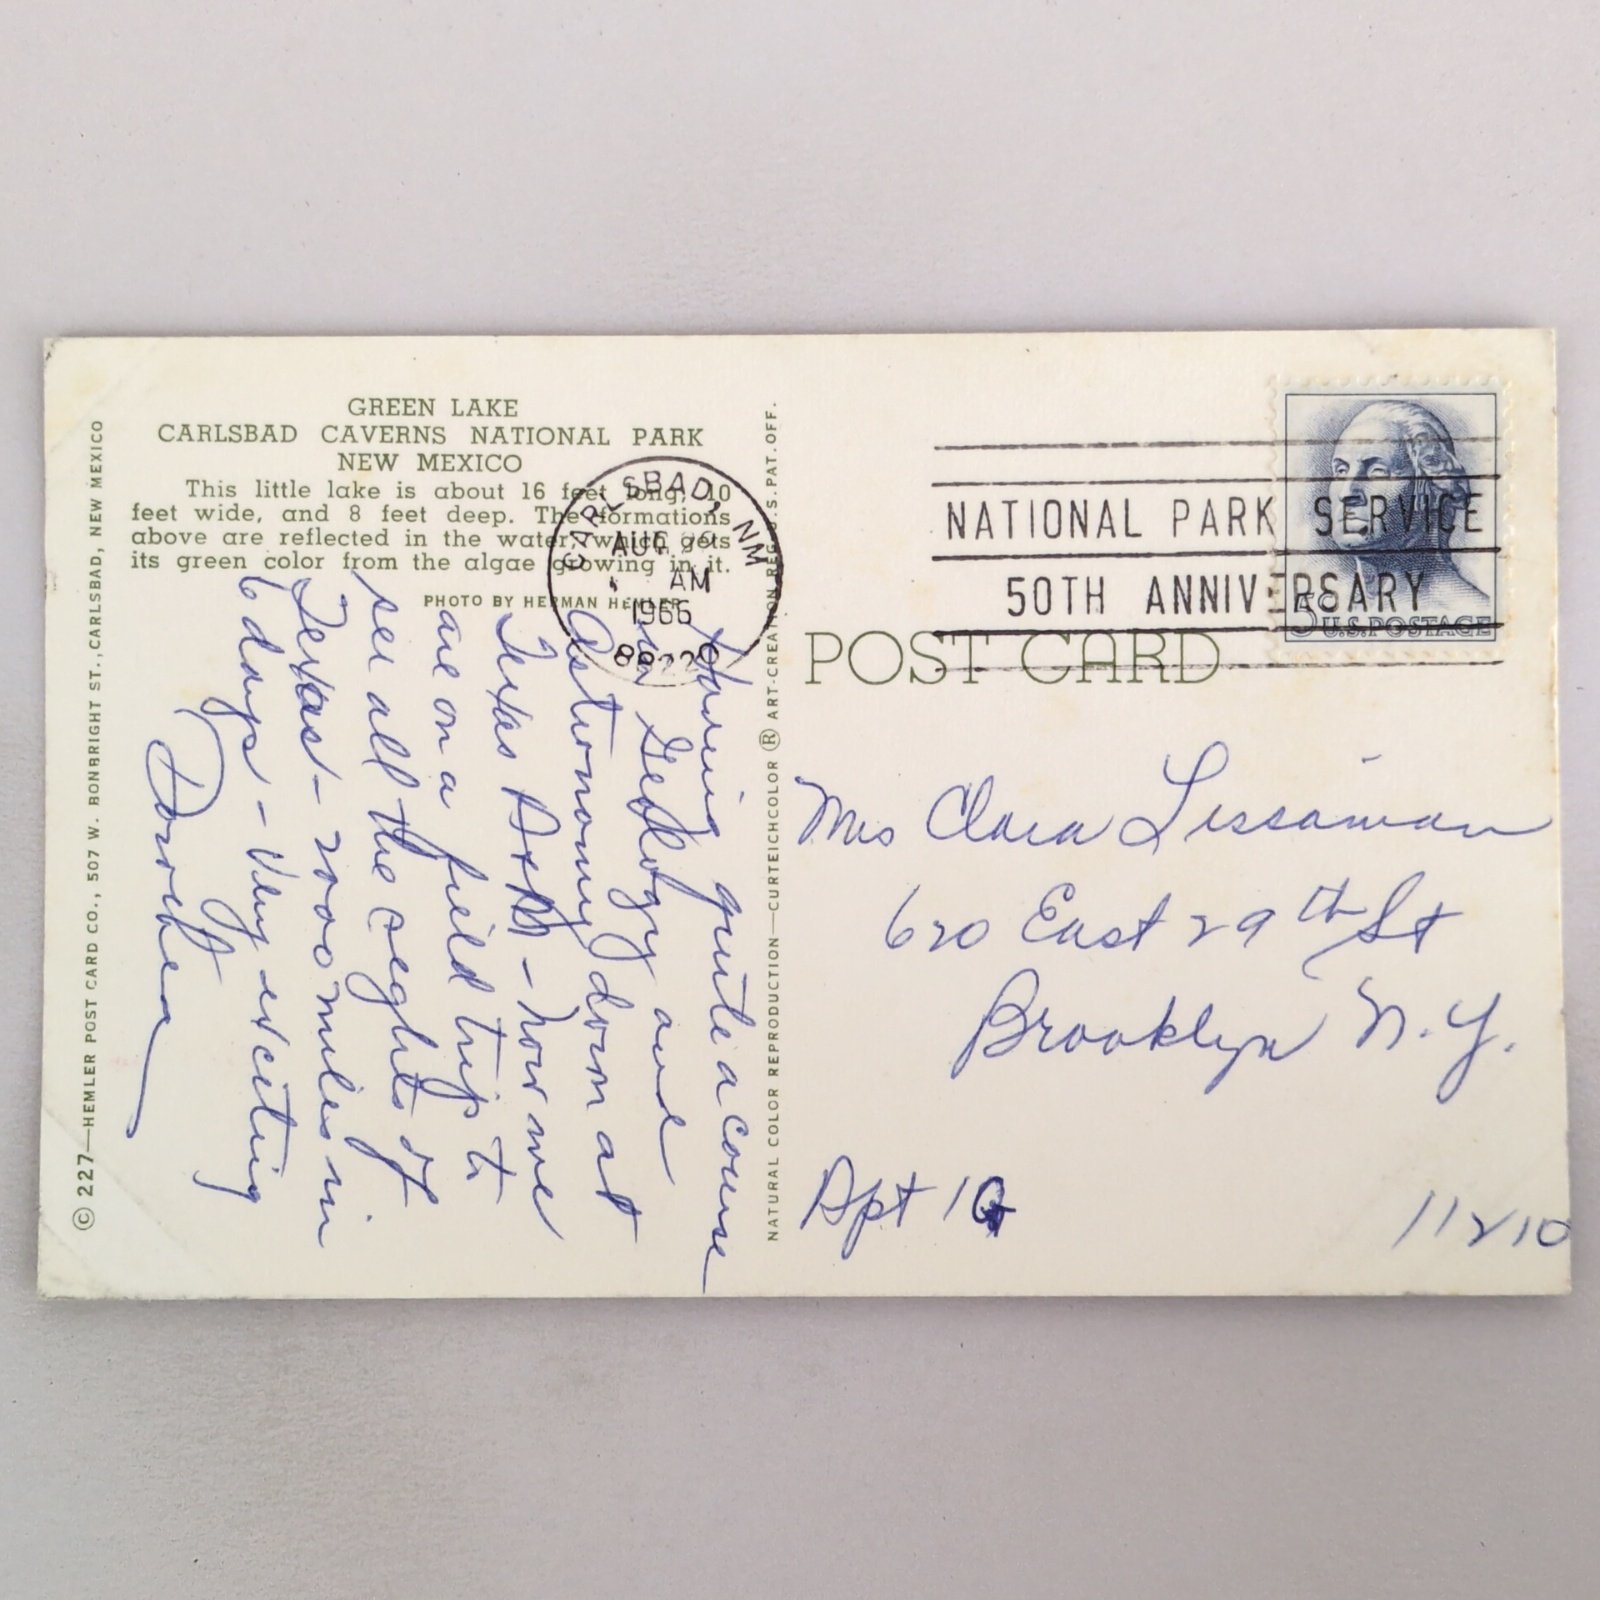 GREEN LAKE
CARLSBAD CAVERNS NATIONAL PARK
NEW MEXICO
This little lake is about 16 feet long, 10
feet wide, and 8 feet deep. The formations
above are reflected in the water, which gets
its green color from the algae growing in it.
PHOTO BY HERMAN HEMLER
© 227—HEMLER POST CARD CO., 507 W. BONBRIGHT ST., CARLSBAD, NEW MEXICO
Having quite a course
in Geology and
Astronomy down at
Texas A&M - now we
are on a field trip to
see all the seghts of
Texas - 2000 miles in
6 days - Very exciting
Dorothea
CARLSBAD, NM
AUG
AM
1966
88220
NATURAL COLOR REPRODUCTION—CURTEICHCOLOR ® ART-CREATION REG. U.S. PAT. OFF.
NATIONAL PARK SERVICE
50TH ANNIVERSARY
5¢
U.S. POSTAGE
POST CARD
Mrs Clara
620 East 29th St
Brooklyn N.Y.
Apt 1G
11210